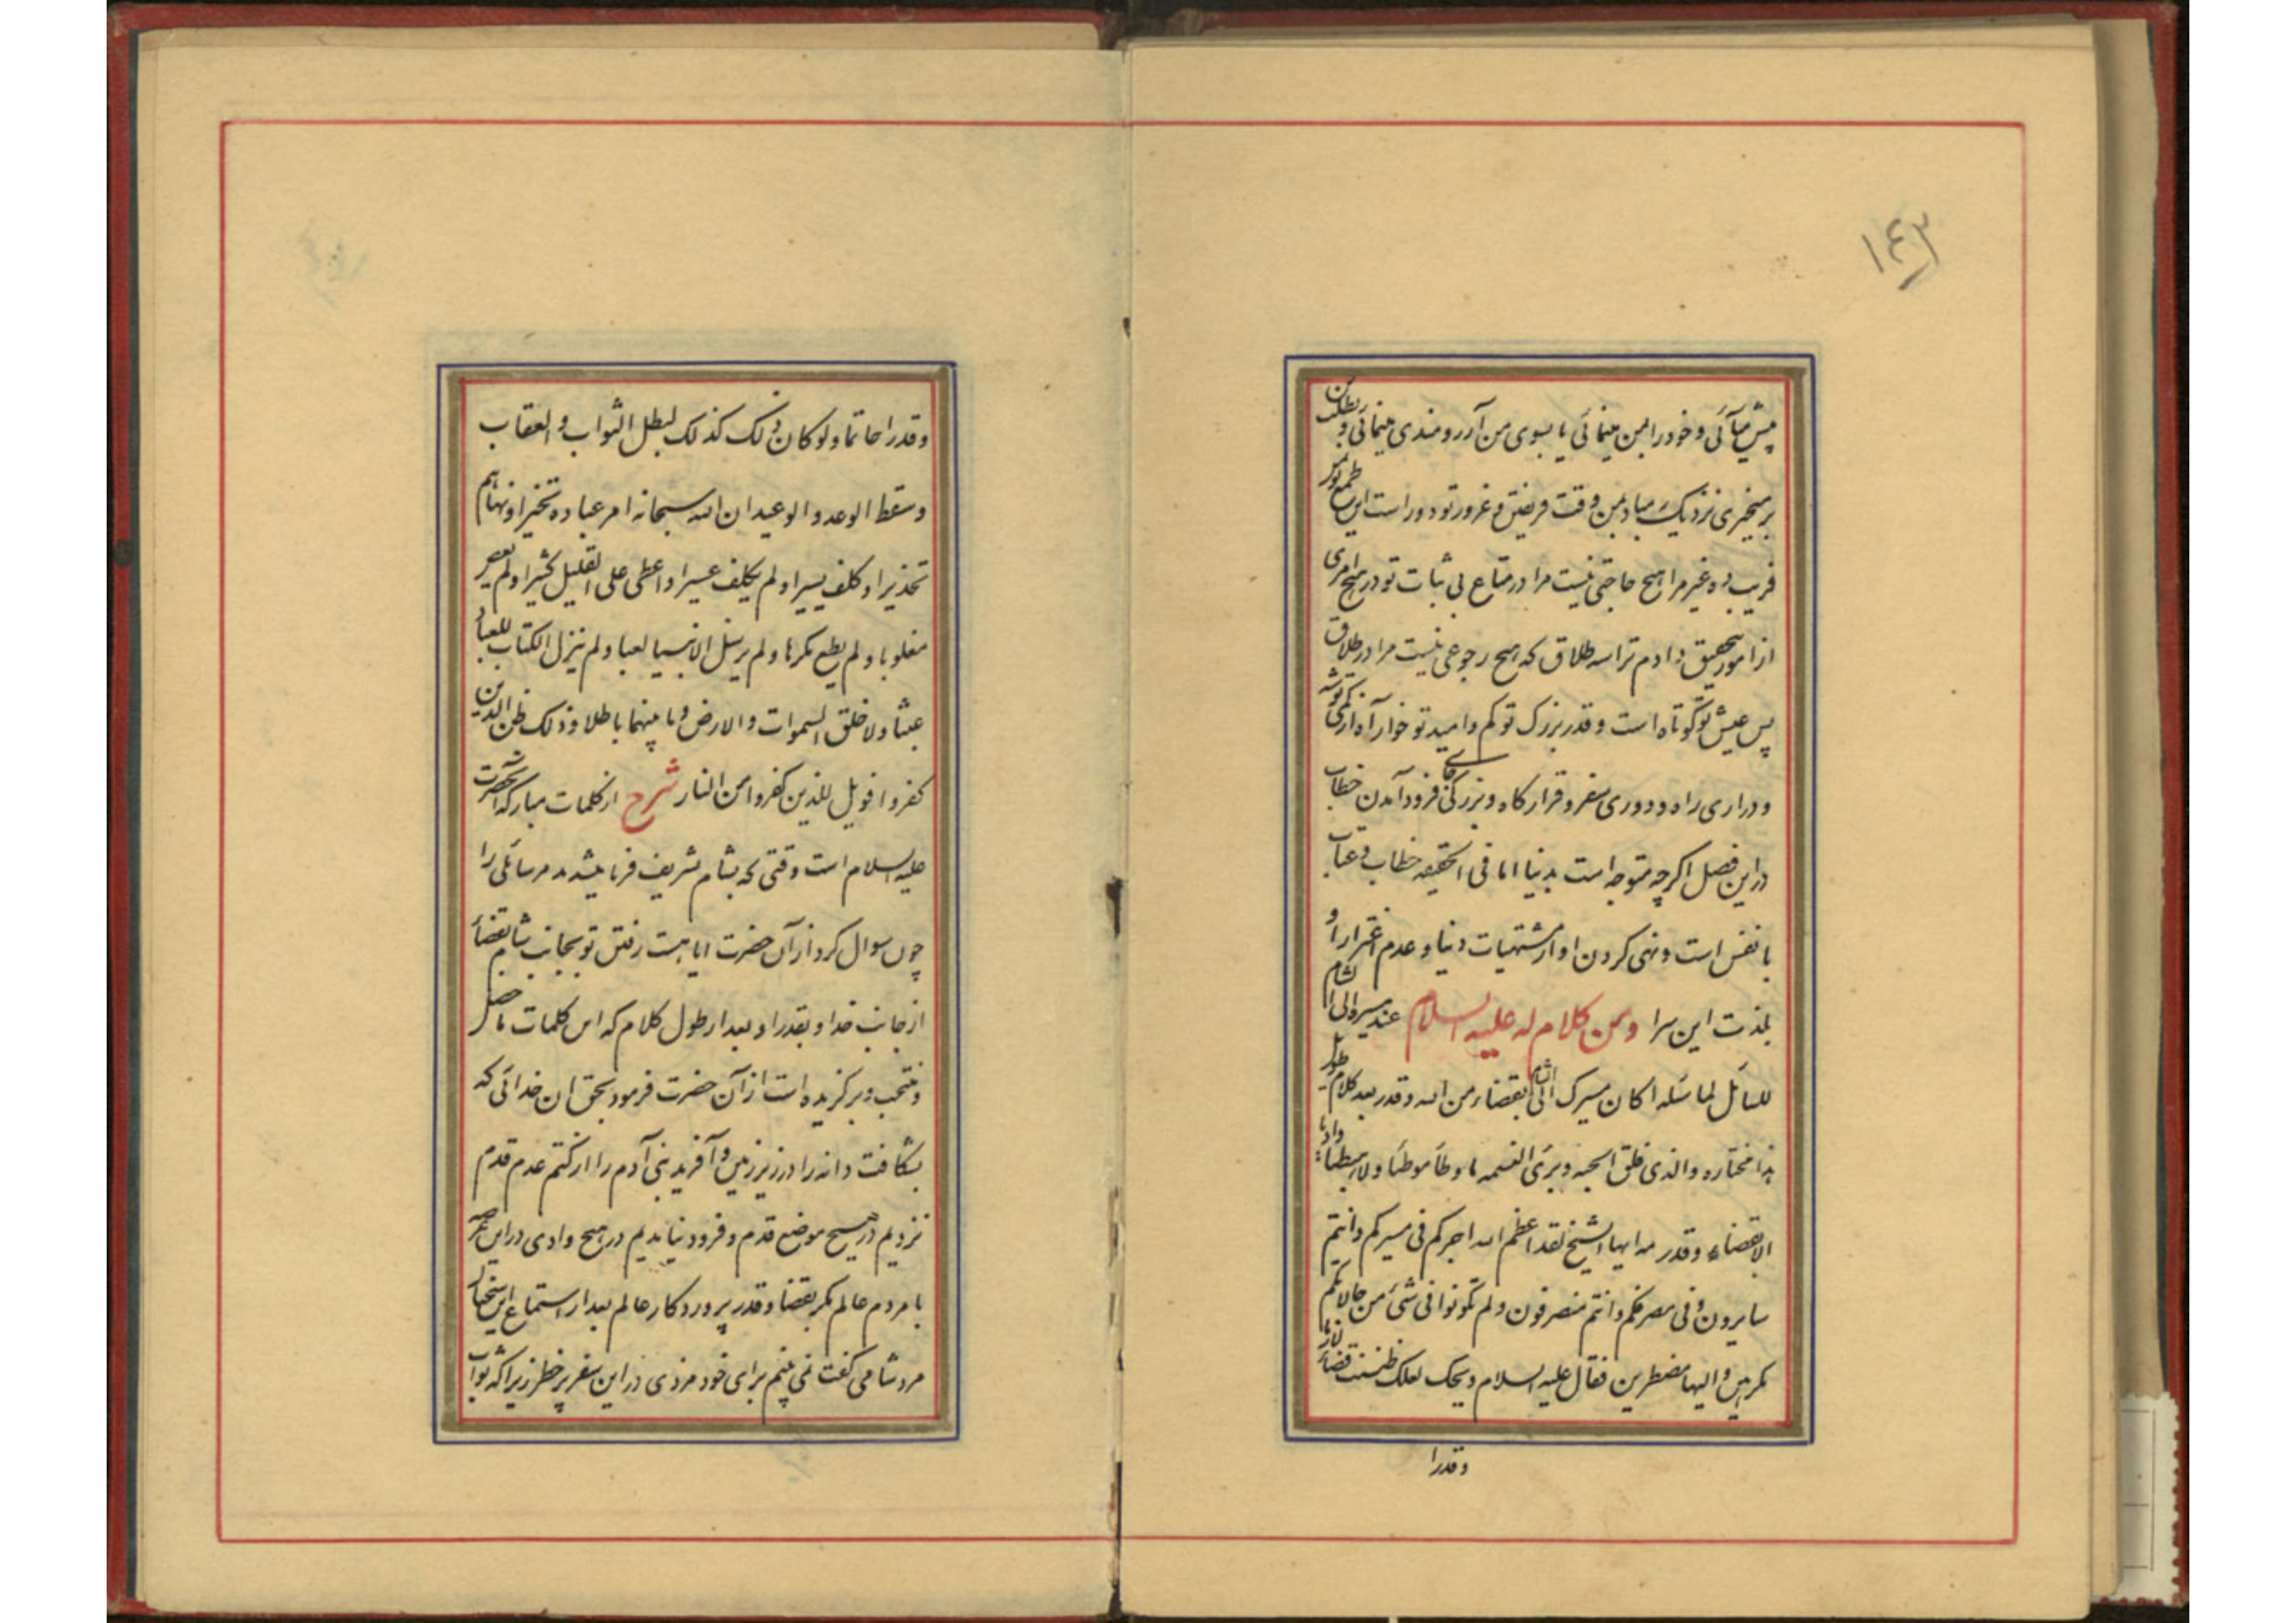 ١٤٣
پیش میآئی و خود را بمن مینمائی یا بسوی من آرزومندی مینمائی و بطلب من
برمیخیزی نزدیک مباد بمن وقت فریفتن و غرور تو دور است این طمع تو پس
فریب ده غیر مرا هیچ حاجتی نیست مرا در متاع بی ثبات تو در هیچ امری
از امور بتحقیق دادم ترا سه طلاق که هیچ رجوعی نیست مرا در طلاق
پس عیش تو کوتاه است و قدر بزرک تو کم و امید تو خوار آه از کمی توشه
و درازی راه و دوری سفر و قرارکاه و بزرکی جای فرود آمدن خطاب
در این فصل اکرچه متوجه است بدنیا اما فی الحقیقه خطاب و عتاب
با نفس است و نهی کردن او از مشتهیات دنیا و عدم اغترار او
بلذت این سرا ومن کلام له علیه السلام عند مسیره الی الشام
للسائل لما سئله اکان مسیرک الی الشام بقضاء من الله و قدر بعد کلام طویل
هذا مختاره والذی فلق الحبه و برئ النسمه ما وطأ موطئا ولا هبطنا وادیا
الا بقضاء و قدر مه ایها الشیخ لقد اعظم الله اجرکم فی مسیرکم وانتم
سایرون وفی مصرفکم وانتم منصرفون ولم تکونوا فی شئ من حالاتکم
مکرهین و الیها مضطرین فقال علیه السلام ویحک لعلک ظننت قضاء لازما
وقدرا
وقدرا حاتما ولو کان ذلک کذلک لبطل الثواب و العقاب
وسقط الوعد و الوعید ان الله سبحانه امر عباده تخیرا و نهاهم
تحذیرا و کلف یسیرا ولم یکلف عسیرا و اعطی علی القلیل کثیرا و لم یعص
مغلوبا ولم یطع مکرها ولم یرسل الانبیا لعبا ولم ینزل الکتاب للعباد
عبثا ولا خلق السموات والارض وما بینهما باطلا و ذلک ظن الذین
کفروا فویل للذین کفروا من النار شرح از کلمات مبارکه آنحضرت
علیه السلام است وقتی که بشام تشریف فرما میشدند مر سائلی را
چون سوال کرد از آن حضرت ایا هست رفتن تو بجانب شام بقضاء
از جانب خدا و بقدر او بعد از طول کلام که این کلمات ما حصل
و منتخب و برکزیده است از آن حضرت فرمود بحق ان خدائی که
بشکافت دانه را در زیر زمین و آفرید بنی آدم را از کتم عدم قدم
نزدیم در هیچ موضع قدم و فرود نیامدیم در هیچ وادی در این
با مردم عالم مکر بقضا و قدر پروردکار عالم بعد از استماع این سخنان
مرد شامی کفت نمی بینم برای خود مزدی در این سفر پر خطر زیرا که ثواب